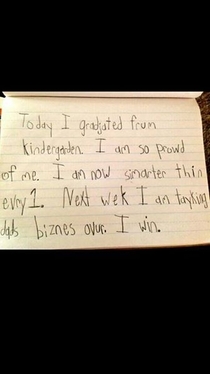 Today I gradjated frum
kindergarden. I am so prowd
of me. I am now smarter thin
evry 1. Next wek I am tayking
dads biznes ovur. I win.